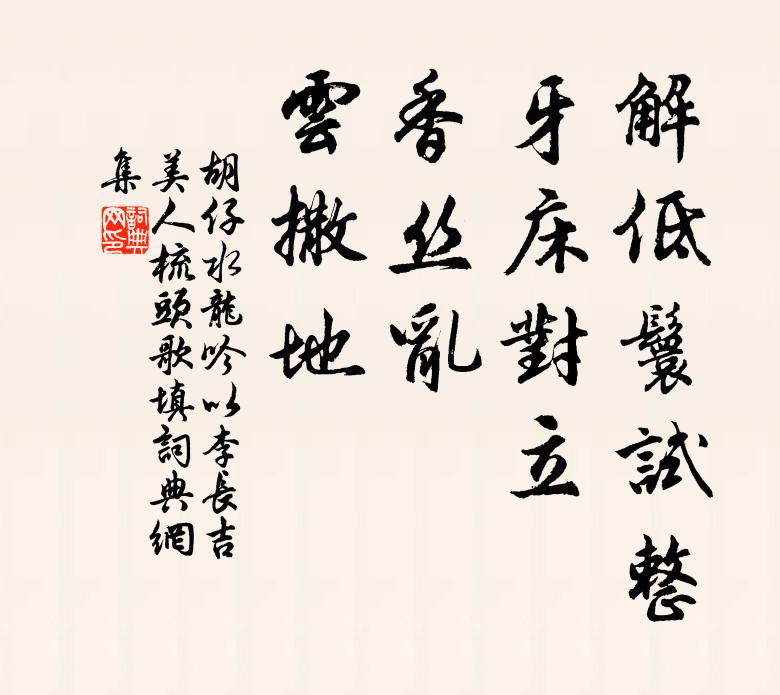 解低鬟試整
牙床對立
香丝亂
雲撒地
胡仔水龍吟以李長吉
美人梳頭歌填詞典網
集
詞典網印